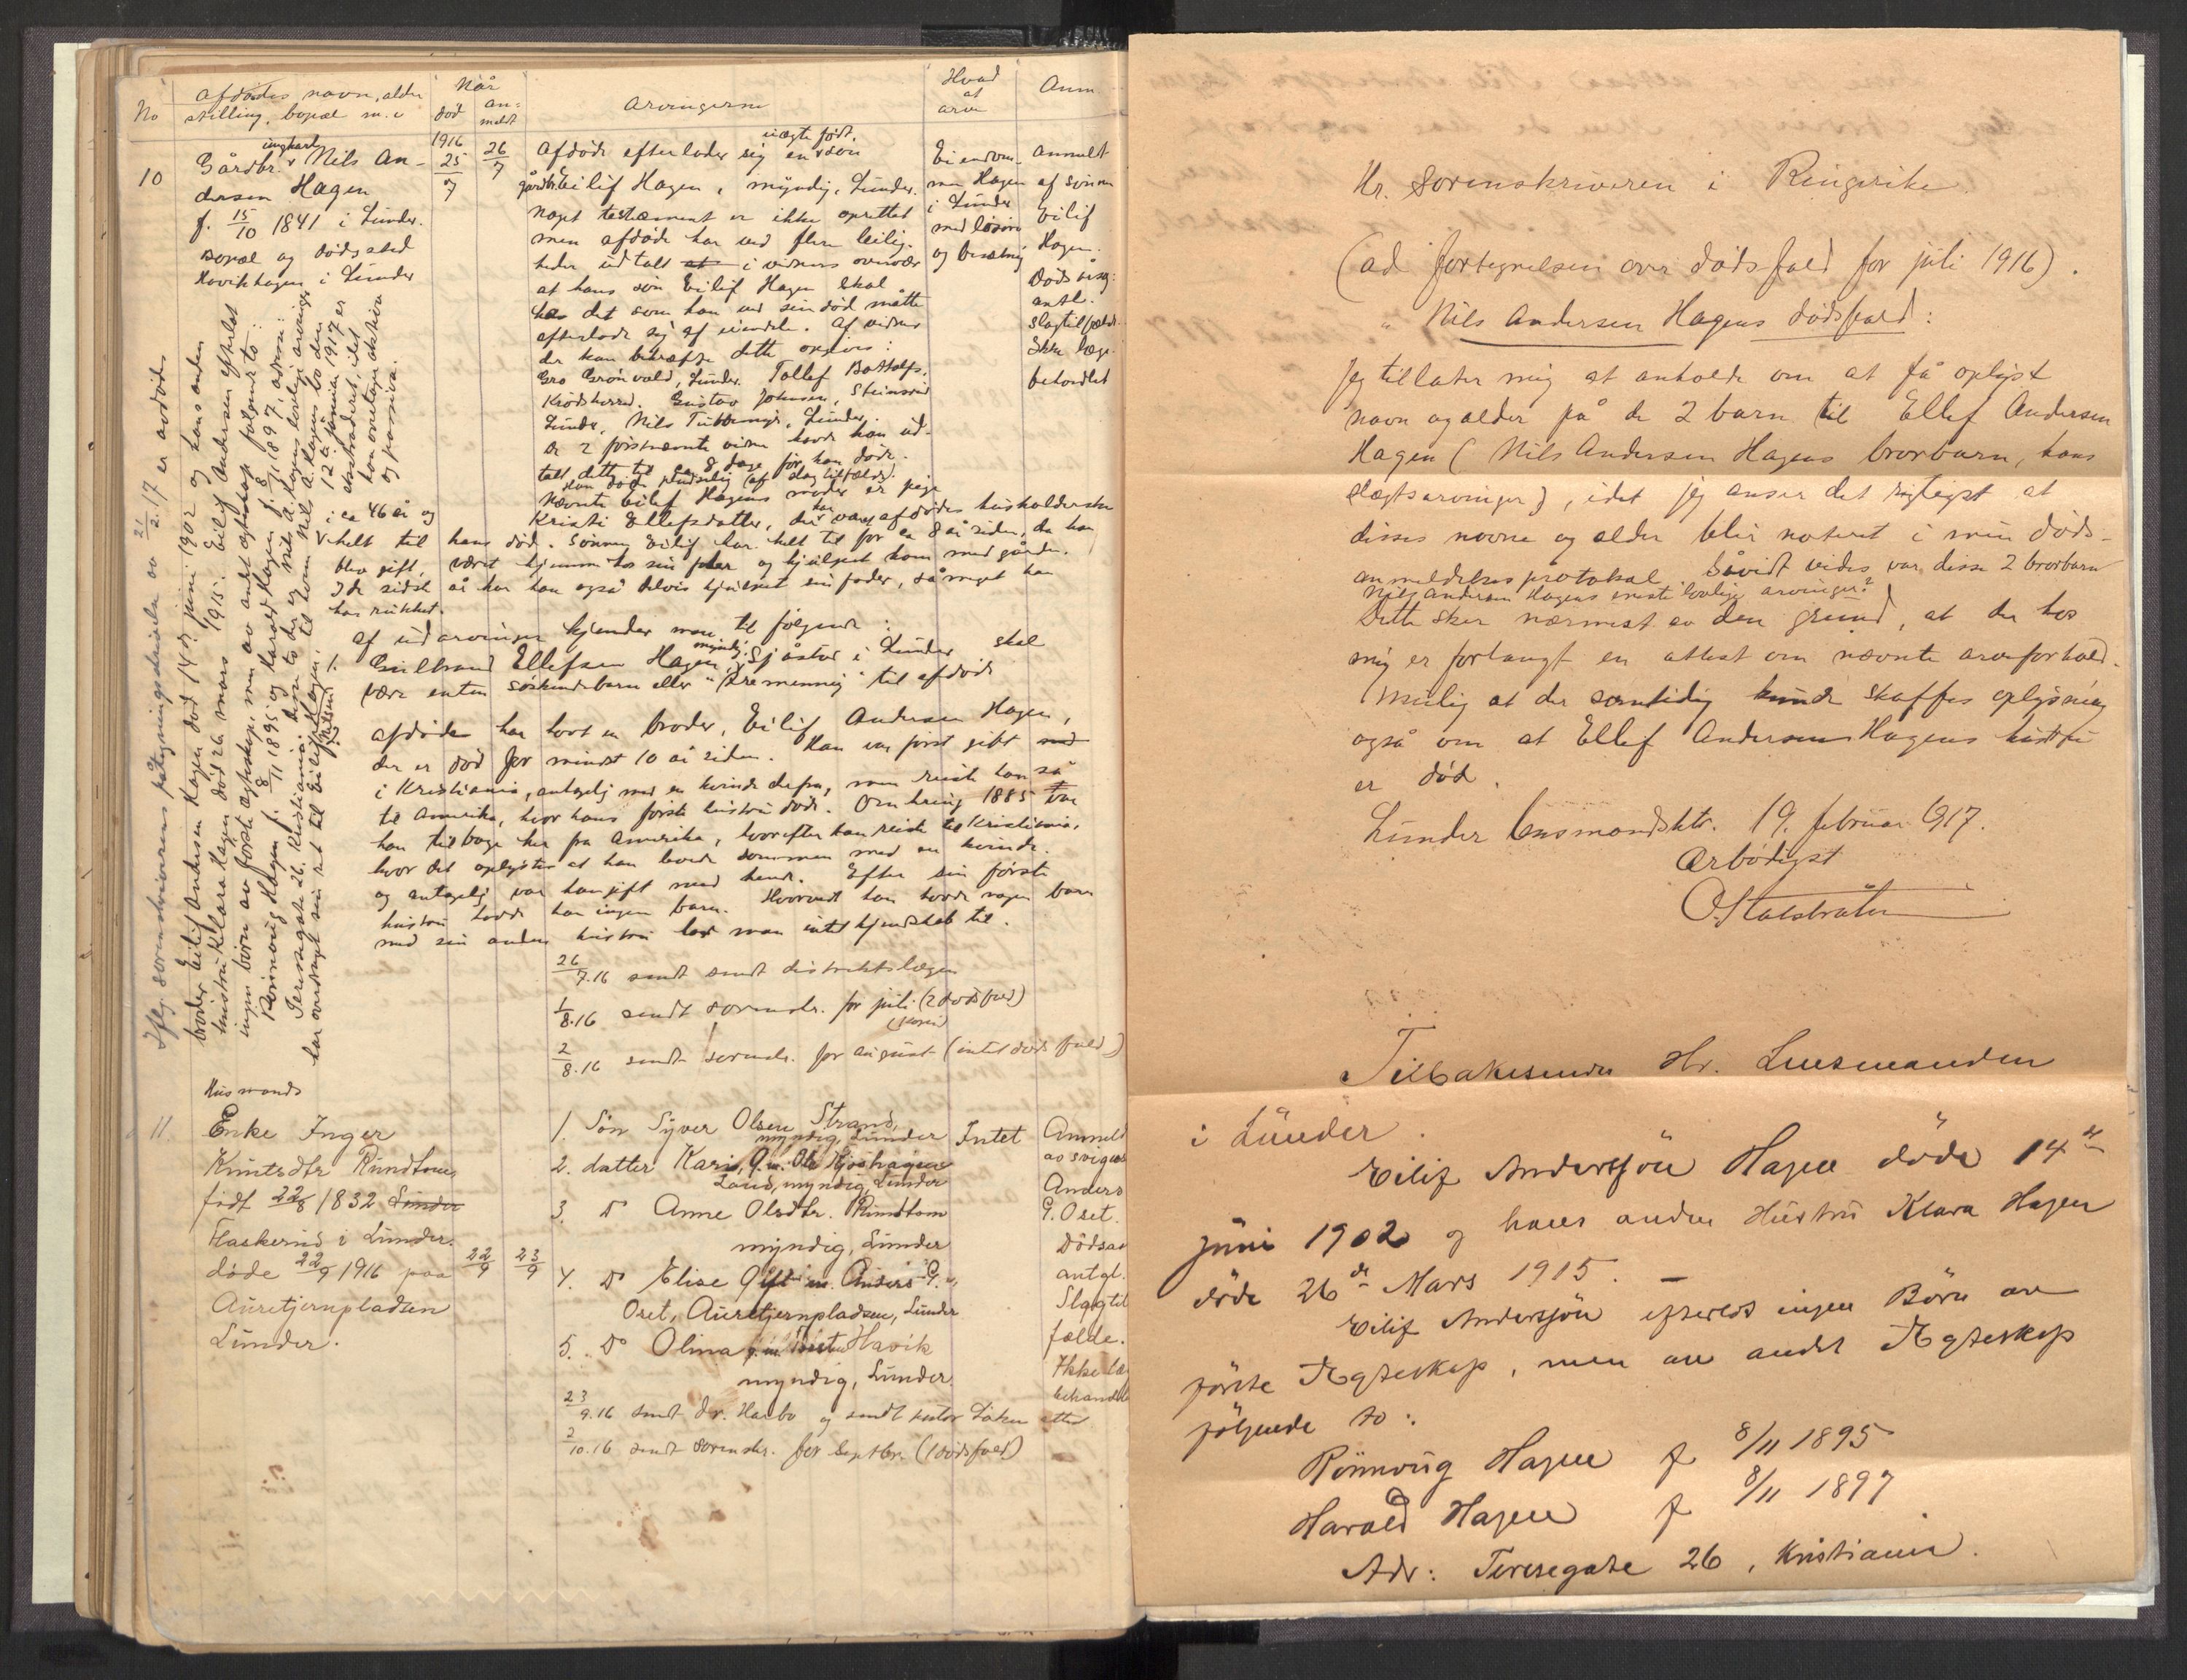 No
afdødes navn, alder
stilling, bopæl m.v
Når
død
an-
meldt
arvingerne
Hvad
at
arve
Anm
10
ungkarl
Gårdbr. Nils An-
dersen Hagen
f. 15/10 1841 i Lunder.
Bopæl og dødssted
Havikhagen i Lunder
1916
25/7
26/7
uægte født.
Afdøde efterlader sig en søn
gårdbr. Eilif Hagen, myndig, Lunder.
Noget testament er ikke oprettet
men afdøde har ved flere leilig-
heder udtalt at i vidners overvær
at hans søn Eilif Hagen skal
ha det som han ved sin død måtte
efterlade sig af eiendele. Af vidner
der kan bekræfte dette opgives:
Gro Grønvold, Lunder. Tollef Bottolfs.
Krødsherred. Gustav Johnsen, Steinsrud
Lunder, Nils Lunder.
De 2 førstnævnte vidner havde han ud-
talt dette til ca 8 dage før han døde.
Han døde pludselig (af slagtilfælde)
Nævnte Eilif Hagens moder er pige
Kristi Ellefsdatter, der har været afdødes husholderske
i ca 46 år og
helt til hans død. Sønnen Eilif har helt til for ca 8 år siden, da han
blev gift, været hjemme hos sin far og hjulpet ham med gården.
I de sidste år har han også delvis hjulpet sin fader, så meget han
har rukket.
Eiendom-
men Hagen
i Lunder
med løsøre
og besætning
Anmeldt
af sønnen
Eilif
Hagen.
Dødsårsag:
antl.
slagtilfælde.
Ikke læge-
behandlet
Af udarvinger kjender man til følgende:
1. Gulbrand Ellefsen Hagen, myndig, Sjåstad i Lunder skal
være enten søskendebarn eller "tremenning" til afdøde
Afdøde har havt en broder, Eilif Andersen Hagen,
der er død for mindst 10 år siden. Han var først gift med
i Kristiania, antagelig med en kvinde derfra, men reiste han så
til Amerika, hvor hans første hustru døde. Omkring 1885 var
han tilbage her fra Amerika, hvorefter han reiste til Kristiania,
hvor det oplystes at han levede sammen med en kvinde.
og antagelig var han gift med hende. Efter sin første
hustru havde han ingen barn. Hvorvidt han havde nogen barn
med sin anden hustru har man intet kjendskab til.
26/7.16 sendt sendt distriktslægen
1/8.16 sendt sorenskr. for juli (2 dødsfald)
2/8.16 sendt sorenskr. for august (intet dødsfald)
Iflg. sorenskriverens påtegningsskrivelse av 21/2.17 er avdødes
broder Eilif Andersen Hagen død 14de juni 1902 og hans anden
hustru Klara Hagen død 26 mars 1915. Eilif Andersen efterlot
ingen børn av første egteskap, men av andet egteskap følgende to:
Rønnoug Hagen f. 8/11 1895 og Harald Hagen f. 8/11 1897, adresse:
Teresegate 26, Kristiania. Disse to der er Nils A. Hagens lovlige arvinger
har overdraget sin ret til Eilif Hagen, til hvem Nils A. Hagens bo den
12te januar 1917 er
ekstraderet, idet
han overtager aktiva
og passiva.
11.
Husmands
Enke Inger
Knutsdtr Rundtom
født 22/8 1832 Lunder
Flaskerud i Lunder.
døde 22/9 1916 paa
Auretjernpladsen
Lunder.
22/9
23/9
1. Søn Syver Olsen Strand,
myndig, Lunder
2. datter Kari,
myndig, Lunder
3. Do Anne Olsdtr. Rundtom
myndig, Lunder
4. Do Elise Gift m. Anders G.
Oset, Auretjernpladsen, Lunder
5. Do Olina Havik
myndig, Lunder.
23/9.16 sendt dr. Harbo
2/10.16 sendt sorenskr. for Septbr. (1 dødsfald)
Intet
Anmeld
av svigers
Anders
G. Oset.
Dødsaa
antgl.
Slagtil
fælde.
Ikke læ
behandle
Hr. Sorenskriveren i Ringerike.
(ad fortegnelsen over dødsfald for juli 1916).
" Nils Andersen Hagens dødsfald:
Jeg tillater mig at anholde om at få oplyst
navn og alder på de 2 barn til Ellef Andersen
Hagen (Nils Andersen Hagens brorbarn, hans
slegtsarvinger), idet jeg anser det rigtigst at
disses navne og alder blir noteret i min døds-
anmeldelsesprotokol. Såvidt vides var disse 2 brorbarn
Nils Andersen Hagens eneste lovlige arvinger?
Dette sker nærmest av den grund, at der hos
mig er forlangt en attest om nævnte arveforhold.
Mulig at der samtidig kunde skaffes oplysning
også om at Ellef Andersen Hagens hustru
er død.
Lunder lensmandsktr. 19. februar 1917.
Ærbødigst
O. Stalsbråten
Tilbakesendes Hr. Lensmanden
i Lunder.
Eilif Andersøn Hagen døde 14de
Juni 1902 og hans anden Hustru Klara Hagen
døde 26de Mars 1915. –
Eilif Andersøn efterlod ingen Børn av
første Ægteskap, men av andet Ægteskap
følgende to:
Rønnoug Hagen f 8/11 1895
Harald Hagen f 8/11 1897
Adr: Teresegate 26, Kristiania.